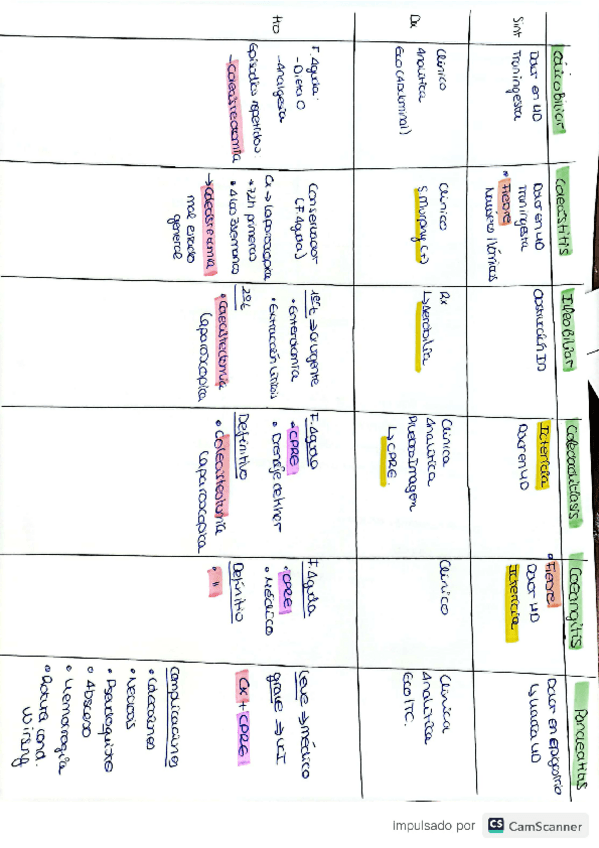 Cólico Biliar
Colecistitis
Ileo Biliar
Coledocolitiasis
Colangitis
Pancreatitis
Sint
Dolor en HD
Tran ingesta
Dolor en HD
Tran ingesta
• Fiebre
Náuseas Vómitos
Obstrucción ID
Ictericia
Dolor en HD
• Fiebre
Dolor HD
Ictericia
Dolor en epigastrio
Dx
Clínico
Analítica
Eco (Abdominal)
Clínico
S. Murphy (+)
Rx
↳ Aerobilia
Clínica
Analítica
Prueba Imagen
↳ CPRE
Clínico
Clínica
Analítica
Eco/TC.
Tto
F. Aguda:
- Dieta O
- Analgesia
Episodios repetidos:
- Colecistectomia
Conservador
(F. Aguda)
Cx → Laparoscopica
• 72h primeras
• A las semanas
→ Colecistectomia
mal estado
general
1º tt ⇒ Cx urgente
• Enterotomia
2º tt
• Colecistectomia
laparoscopica
F. Agudo
• CPRE
• Drenaje de Kher
Definitivo
• Colecistectomia
laparoscopica
F. Aguda
• CPRE
• Médico
Definitio
• "
Leve ⇒ médico
grave ⇒ UCI
Cx + CPRE
Complicaciones
• Colecciones
• Necrosis
• Pseudoquiste
• Absceso
• Hemorragia
• Rotura cond.
Wirsung
Impulsado por CS CamScanner